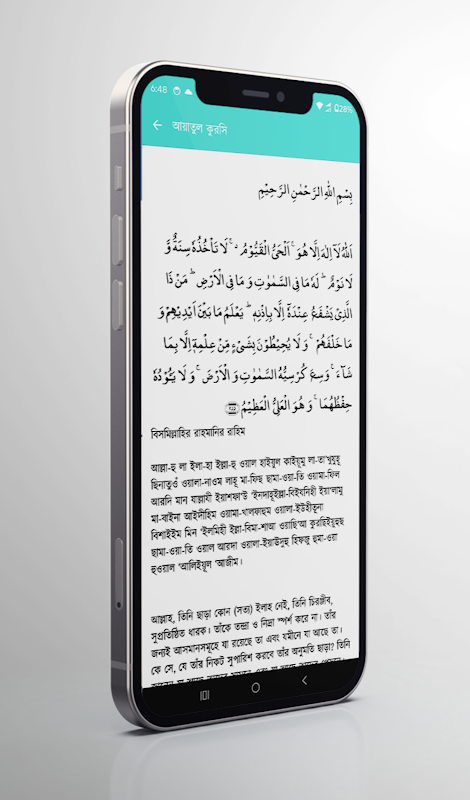 6:48
28%
আয়াতুল কুরসি
بِسْمِ اللهِ الرَّحْمٰنِ الرَّحِيْمِ
اَللهُ لَآ اِلٰهَ اِلَّا هُوَ ۚ اَلْحَىُّ الْقَيُّوْمُ ۚ لَا تَاْخُذُهٗ سِنَةٌ وَّ
لَا نَوْمٌ ؕ لَهٗ مَا فِى السَّمٰوٰتِ وَ مَا فِى الْاَرْضِ ؕ مَنْ ذَا
الَّذِىْ يَشْفَعُ عِنْدَهٗۤ اِلَّا بِاِذْنِهٖ ؕ يَعْلَمُ مَا بَيْنَ اَيْدِيْهِمْ وَ
مَا خَلْفَهُمْ ۚ وَ لَا يُحِيْطُوْنَ بِشَىْءٍ مِّنْ عِلْمِهٖۤ اِلَّا بِمَا
شَآءَ ۚ وَسِعَ كُرْسِيُّهُ السَّمٰوٰتِ وَ الْاَرْضَ ۚ وَ لَا يَـُٔوْدُهٗ
حِفْظُهُمَا ۚ وَ هُوَ الْعَلِىُّ الْعَظِيْمُ ﴿۲۵۵﴾
বিসমিল্লাহির রাহমানির রাহিম
আল্লা-হু লা ইলা-হা ইল্লা-হু ওয়াল হাইয়ুল কাইয়ূমু লা-তা’খুযুহূ
ছিনাতুওঁ ওয়ালা-নাওম লাহূ মা-ফিছ ছামা-ওয়া-তি ওয়ামা-ফিল
আরদি মান যাল্লাযী ইয়াশফা‘উ ‘ইনদাহূইল্লা-বিইযনিহী ইয়া‘লামু
মা-বাইনা আইদীহিম ওয়ামা-খালফাহুম ওয়ালা-ইউহীতূনা
বিশাইইম মিন ‘ইলমিহী ইল্লা-বিমা-শাআ ওয়াছি‘আ কুরছিইয়ুহুছ
ছামা-ওয়া-তি ওয়াল আরদা ওয়ালা-ইয়াউদুহু হিফজু হুমা-ওয়া
হুওয়াল ‘আলিইয়ূল ‘আজীম।
আল্লাহ, তিনি ছাড়া কোন (সত্য) ইলাহ নেই, তিনি চিরঞ্জীব,
সুপ্রতিষ্ঠিত ধারক। তাঁকে তন্দ্রা ও নিদ্রা স্পর্শ করে না। তাঁর
জন্যই আসমানসমূহে যা রয়েছে তা এবং যমীনে যা আছে তা।
কে সে, যে তাঁর নিকট সুপারিশ করবে তাঁর অনুমতি ছাড়া? তিনি